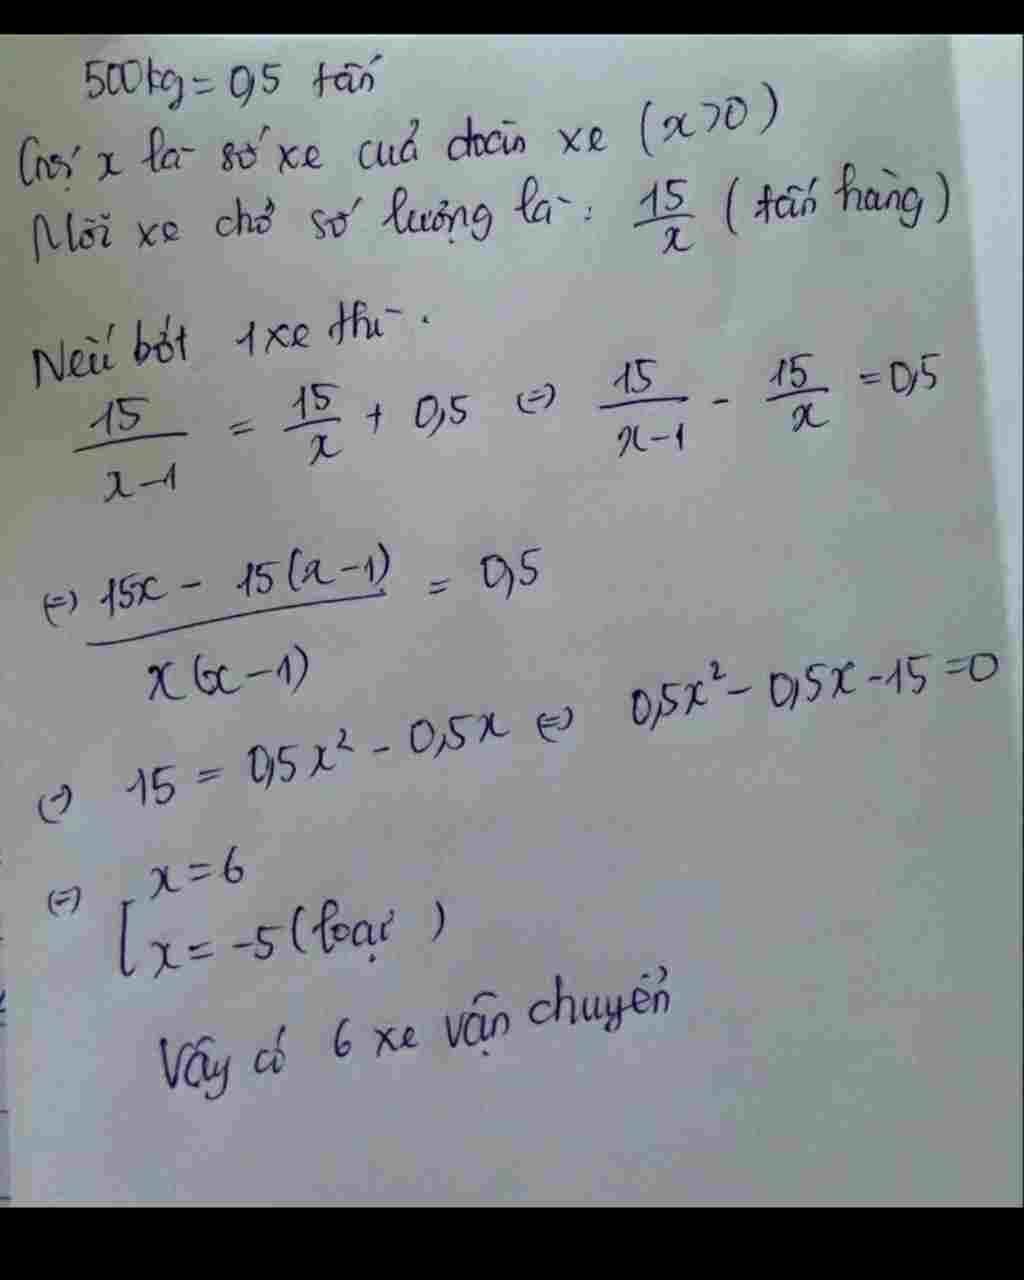 500kg = 0,5 tấn
Gọi x là số xe cuả đoàn xe (x>0)
Mỗi xe chở số lượng là: 15/x (tấn hàng)
Nếu bớt 1 xe thì.
15/(x-1) = 15/x + 0,5 (=) 15/(x-1) - 15/x = 0,5
(=) (15x - 15(x-1))/(x(x-1)) = 0,5
(=) 15 = 0,5x² - 0,5x (=) 0,5x² - 0,5x - 15 = 0
(=) [ x = 6
x = -5 (loại)
Vậy có 6 xe vận chuyển